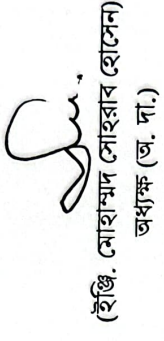 (ইঞ্জি. মোহাম্মদ সোহরাব হোসেন)
অধ্যক্ষ (অ. দা.)